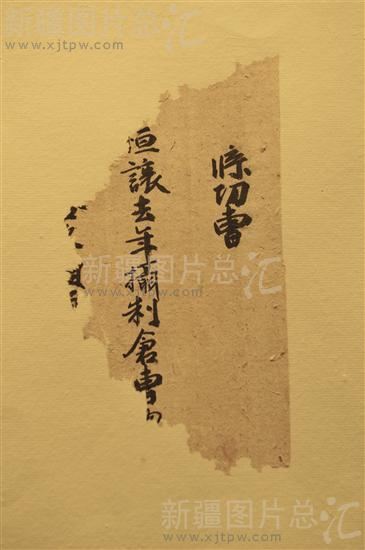 新疆图片总汇
www.xjtpw.com
功曹
垣讓去年攝制倉曹
新疆图片总汇
www.xjtpw.com
新疆图片总汇
www.xjtpw.com